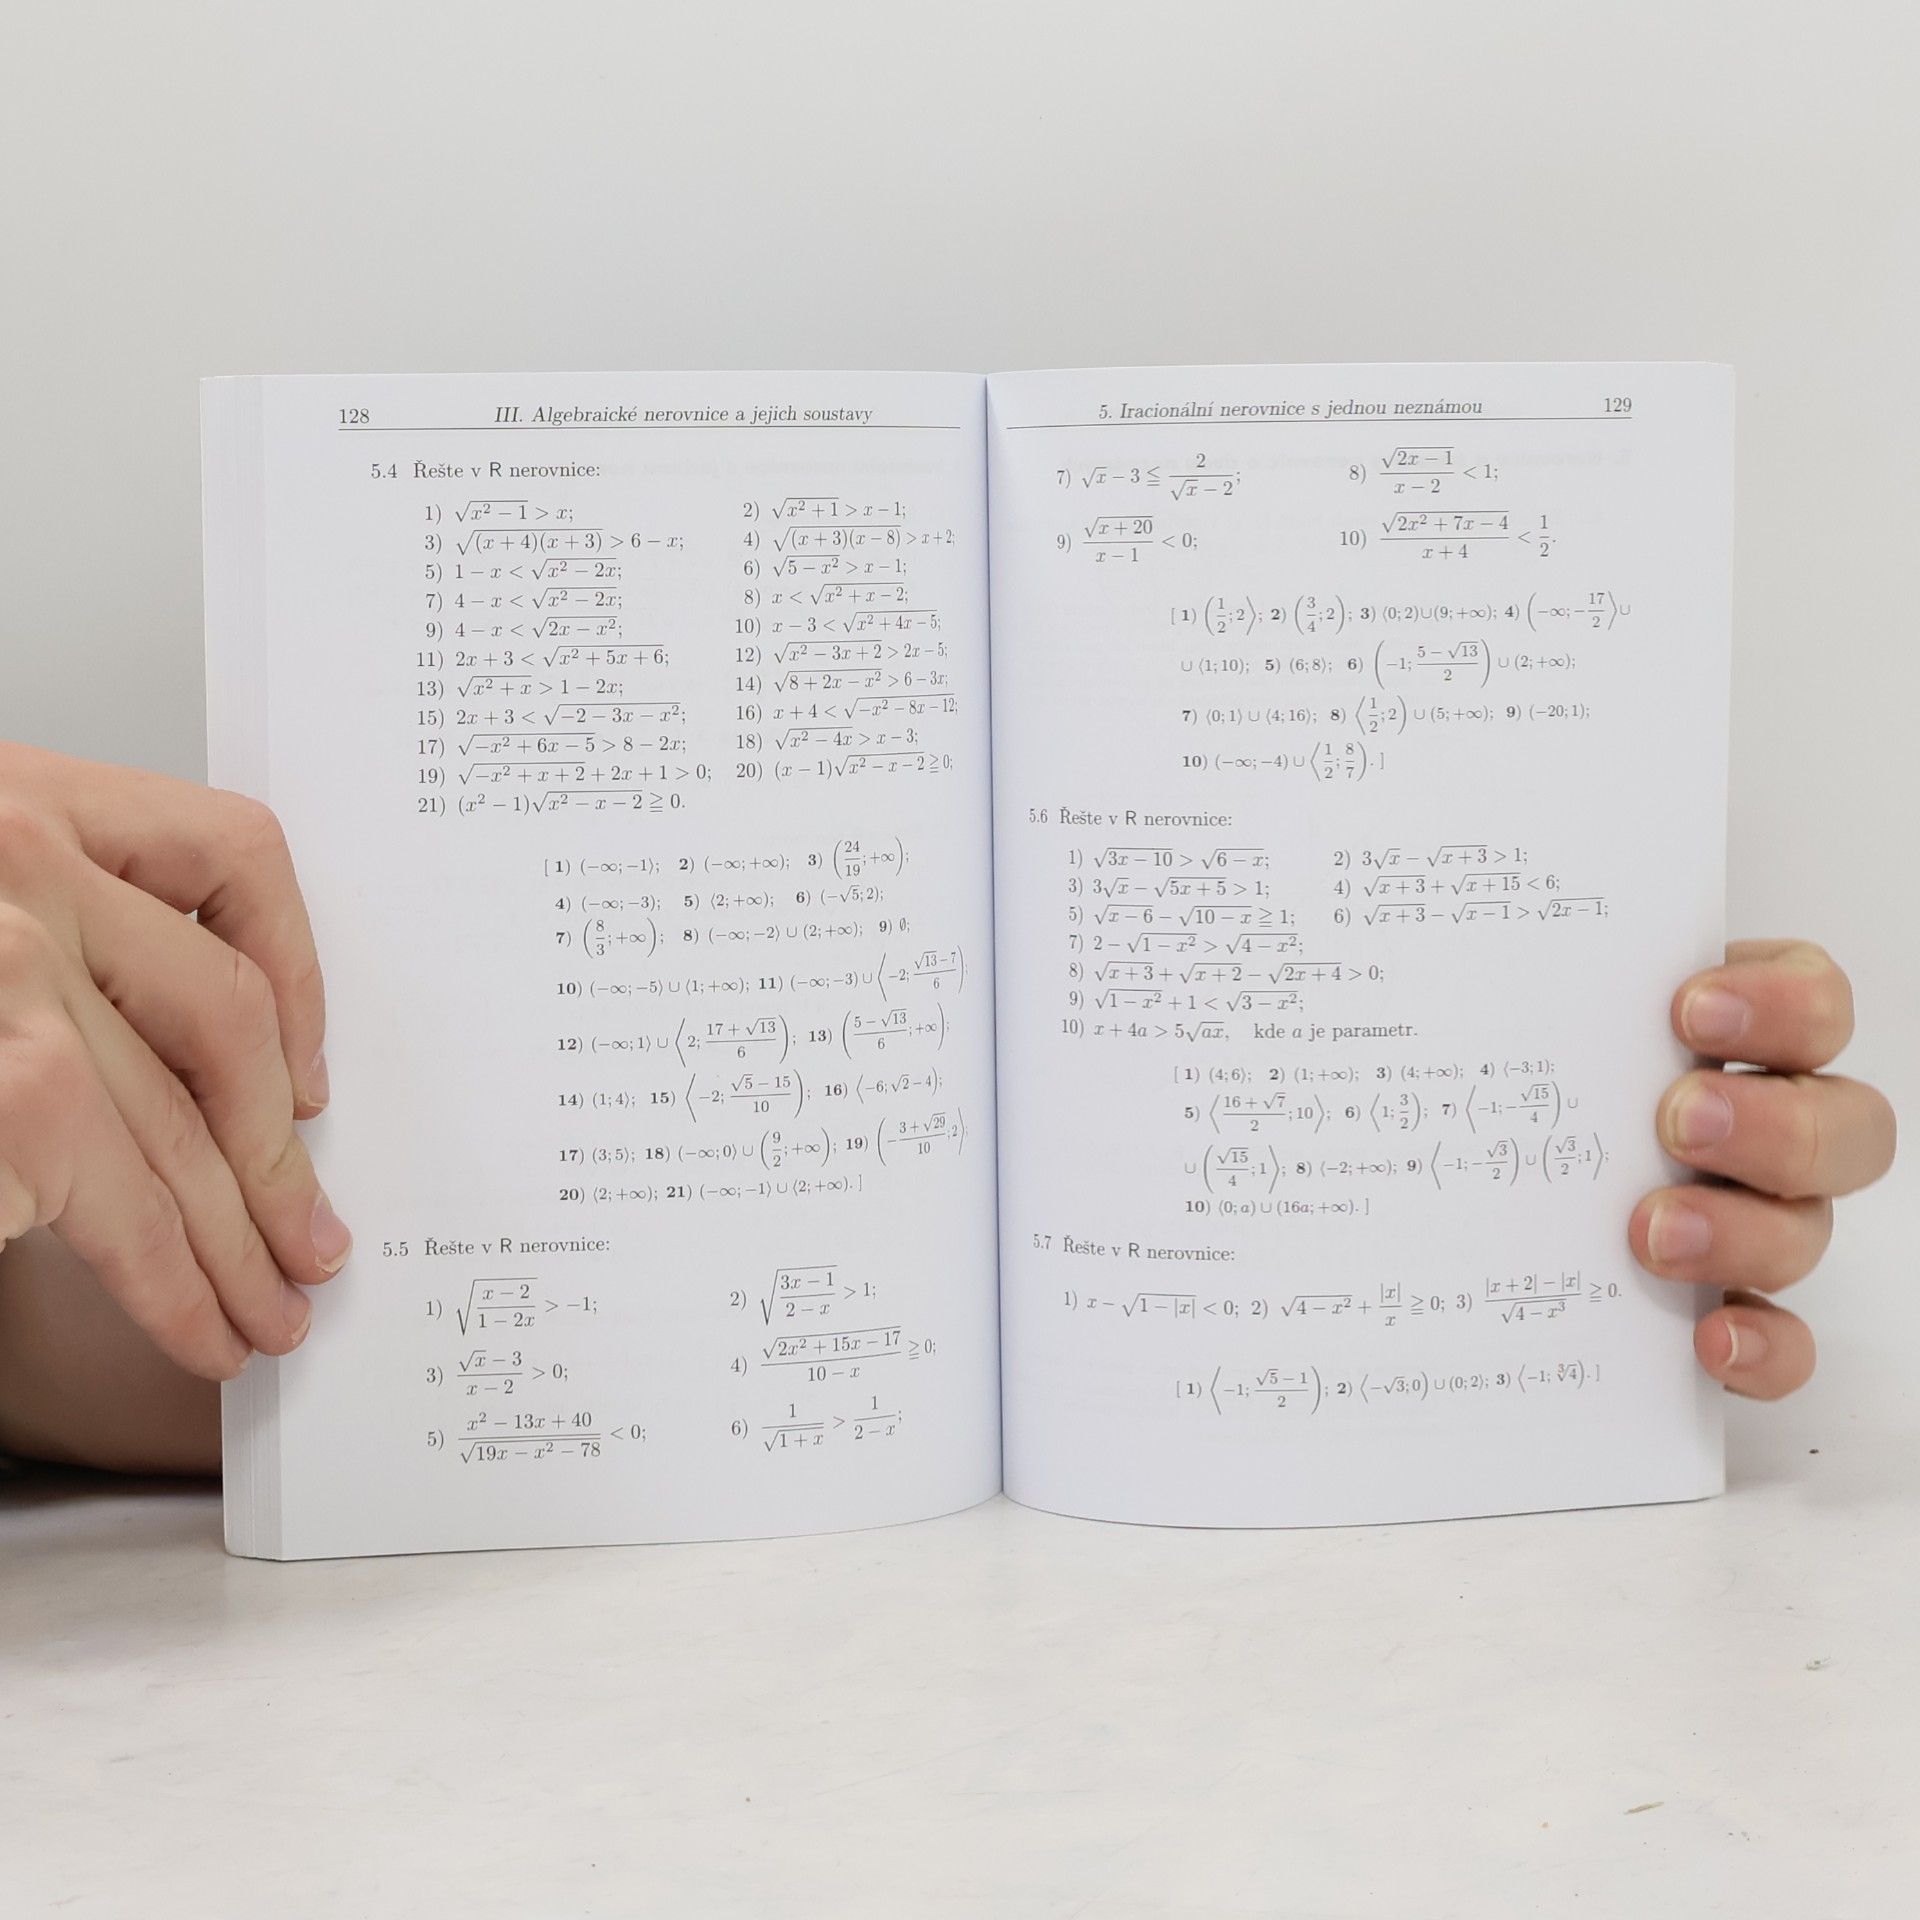 128 III. Algebraické nerovnice a jejich soustavy
5.4 Řešte v R nerovnice:
1) √(x² − 1) > x; 2) √(x² + 1) > x − 1;
3) √((x + 4)(x + 3)) > 6 − x; 4) √((x + 3)(x − 8)) > x + 2;
5) 1 − x < √(x² − 2x); 6) √(5 − x²) > x − 1;
7) 4 − x < √(x² − 2x); 8) x < √(x² + x − 2);
9) 4 − x < √(2x − x²); 10) x − 3 < √(x² + 4x − 5);
11) 2x + 3 < √(x² + 5x + 6); 12) √(x² − 3x + 2) > 2x − 5;
13) √(x² + x) > 1 − 2x; 14) √(8 + 2x − x²) > 6 − 3x;
15) 2x + 3 < √(−2 − 3x − x²); 16) x + 4 < √(−x² − 8x − 12);
17) √(−x² + 6x − 5) > 8 − 2x; 18) √(x² − 4x) > x − 3;
19) √(−x² + x + 2) + 2x + 1 > 0; 20) (x − 1)√(x² − x − 2) ≧ 0;
21) (x² − 1)√(x² − x − 2) ≧ 0.
[ 1) (−∞; −1⟩; 2) (−∞; +∞); 3) (24/19; +∞);
4) (−∞; −3); 5) ⟨2; +∞); 6) (−√5; 2);
7) (8/3; +∞); 8) (−∞; −2) ∪ (2; +∞); 9) ∅;
10) (−∞; −5) ∪ ⟨1; +∞); 11) (−∞; −3) ∪ ⟨−2; (√13 − 7)/6);
12) (−∞; 1⟩ ∪ ⟨2; (17 + √13)/6); 13) ((5 − √13)/6; +∞);
14) (1; 4⟩; 15) ⟨−2; (√5 − 15)/10); 16) ⟨−6; √2 − 4);
17) (3; 5⟩; 18) (−∞; 0⟩ ∪ (9/2; +∞); 19) (−(3 + √29)/10; 2⟩;
20) ⟨2; +∞); 21) (−∞; −1⟩ ∪ ⟨2; +∞). ]
5.5 Řešte v R nerovnice:
1) √((x − 2)/(1 − 2x)) > −1; 2) √((3x − 1)/(2 − x)) > 1;
3) (√x − 3)/(x − 2) > 0; 4) √(2x² + 15x − 17)/(10 − x) ≧ 0;
5) (x² − 13x + 40)/√(19x − x² − 78) < 0; 6) 1/√(1 + x) > 1/(2 − x);
5. Iracionální nerovnice s jednou neznámou 129
7) √x − 3 ≦ 2/(√x − 2); 8) √(2x − 1)/(x − 2) < 1;
9) √(x + 20)/(x − 1) < 0; 10) √(2x² + 7x − 4)/(x + 4) < 1/2.
[ 1) (1/2; 2⟩; 2) (3/4; 2); 3) ⟨0; 2) ∪ (9; +∞); 4) (−∞; −17/2⟩ ∪
∪ ⟨1; 10); 5) (6; 8⟩; 6) (−1; (5 − √13)/2) ∪ (2; +∞);
7) ⟨0; 1⟩ ∪ (4; 16⟩; 8) ⟨1/2; 2) ∪ (5; +∞); 9) (−20; 1);
10) (−∞; −4) ∪ ⟨1/2; 8/7). ]
5.6 Řešte v R nerovnice:
1) √(3x − 10) > √(6 − x); 2) 3√x − √(x + 3) > 1;
3) 3√x − √(5x + 5) > 1; 4) √(x + 3) + √(x + 15) < 6;
5) √(x − 6) − √(10 − x) ≧ 1; 6) √(x + 3) − √(x − 1) > √(2x − 1);
7) 2 − √(1 − x²) > √(4 − x²);
8) √(x + 3) + √(x + 2) − √(2x + 4) > 0;
9) √(1 − x²) + 1 < √(3 − x²);
10) x + 4a > 5√(ax), kde a je parametr.
[ 1) (4; 6⟩; 2) (1; +∞); 3) (4; +∞); 4) ⟨−3; 1);
5) ⟨(16 + √7)/2; 10⟩; 6) ⟨1; 3/2); 7) ⟨−1; −√15/4) ∪
∪ (√15/4; 1⟩; 8) ⟨−2; +∞); 9) ⟨−1; −√3/2) ∪ (√3/2; 1⟩;
10) ⟨0; a) ∪ (16a; +∞). ]
5.7 Řešte v R nerovnice:
1) x − √(1 − |x|) < 0; 2) √(4 − x²) + |x|/x ≧ 0; 3) (|x + 2| − |x|)/√(4 − x³) ≧ 0.
[ 1) ⟨−1; (√5 − 1)/2); 2) ⟨−√3; 0) ∪ (0; 2⟩; 3) ⟨−1; ∛4). ]